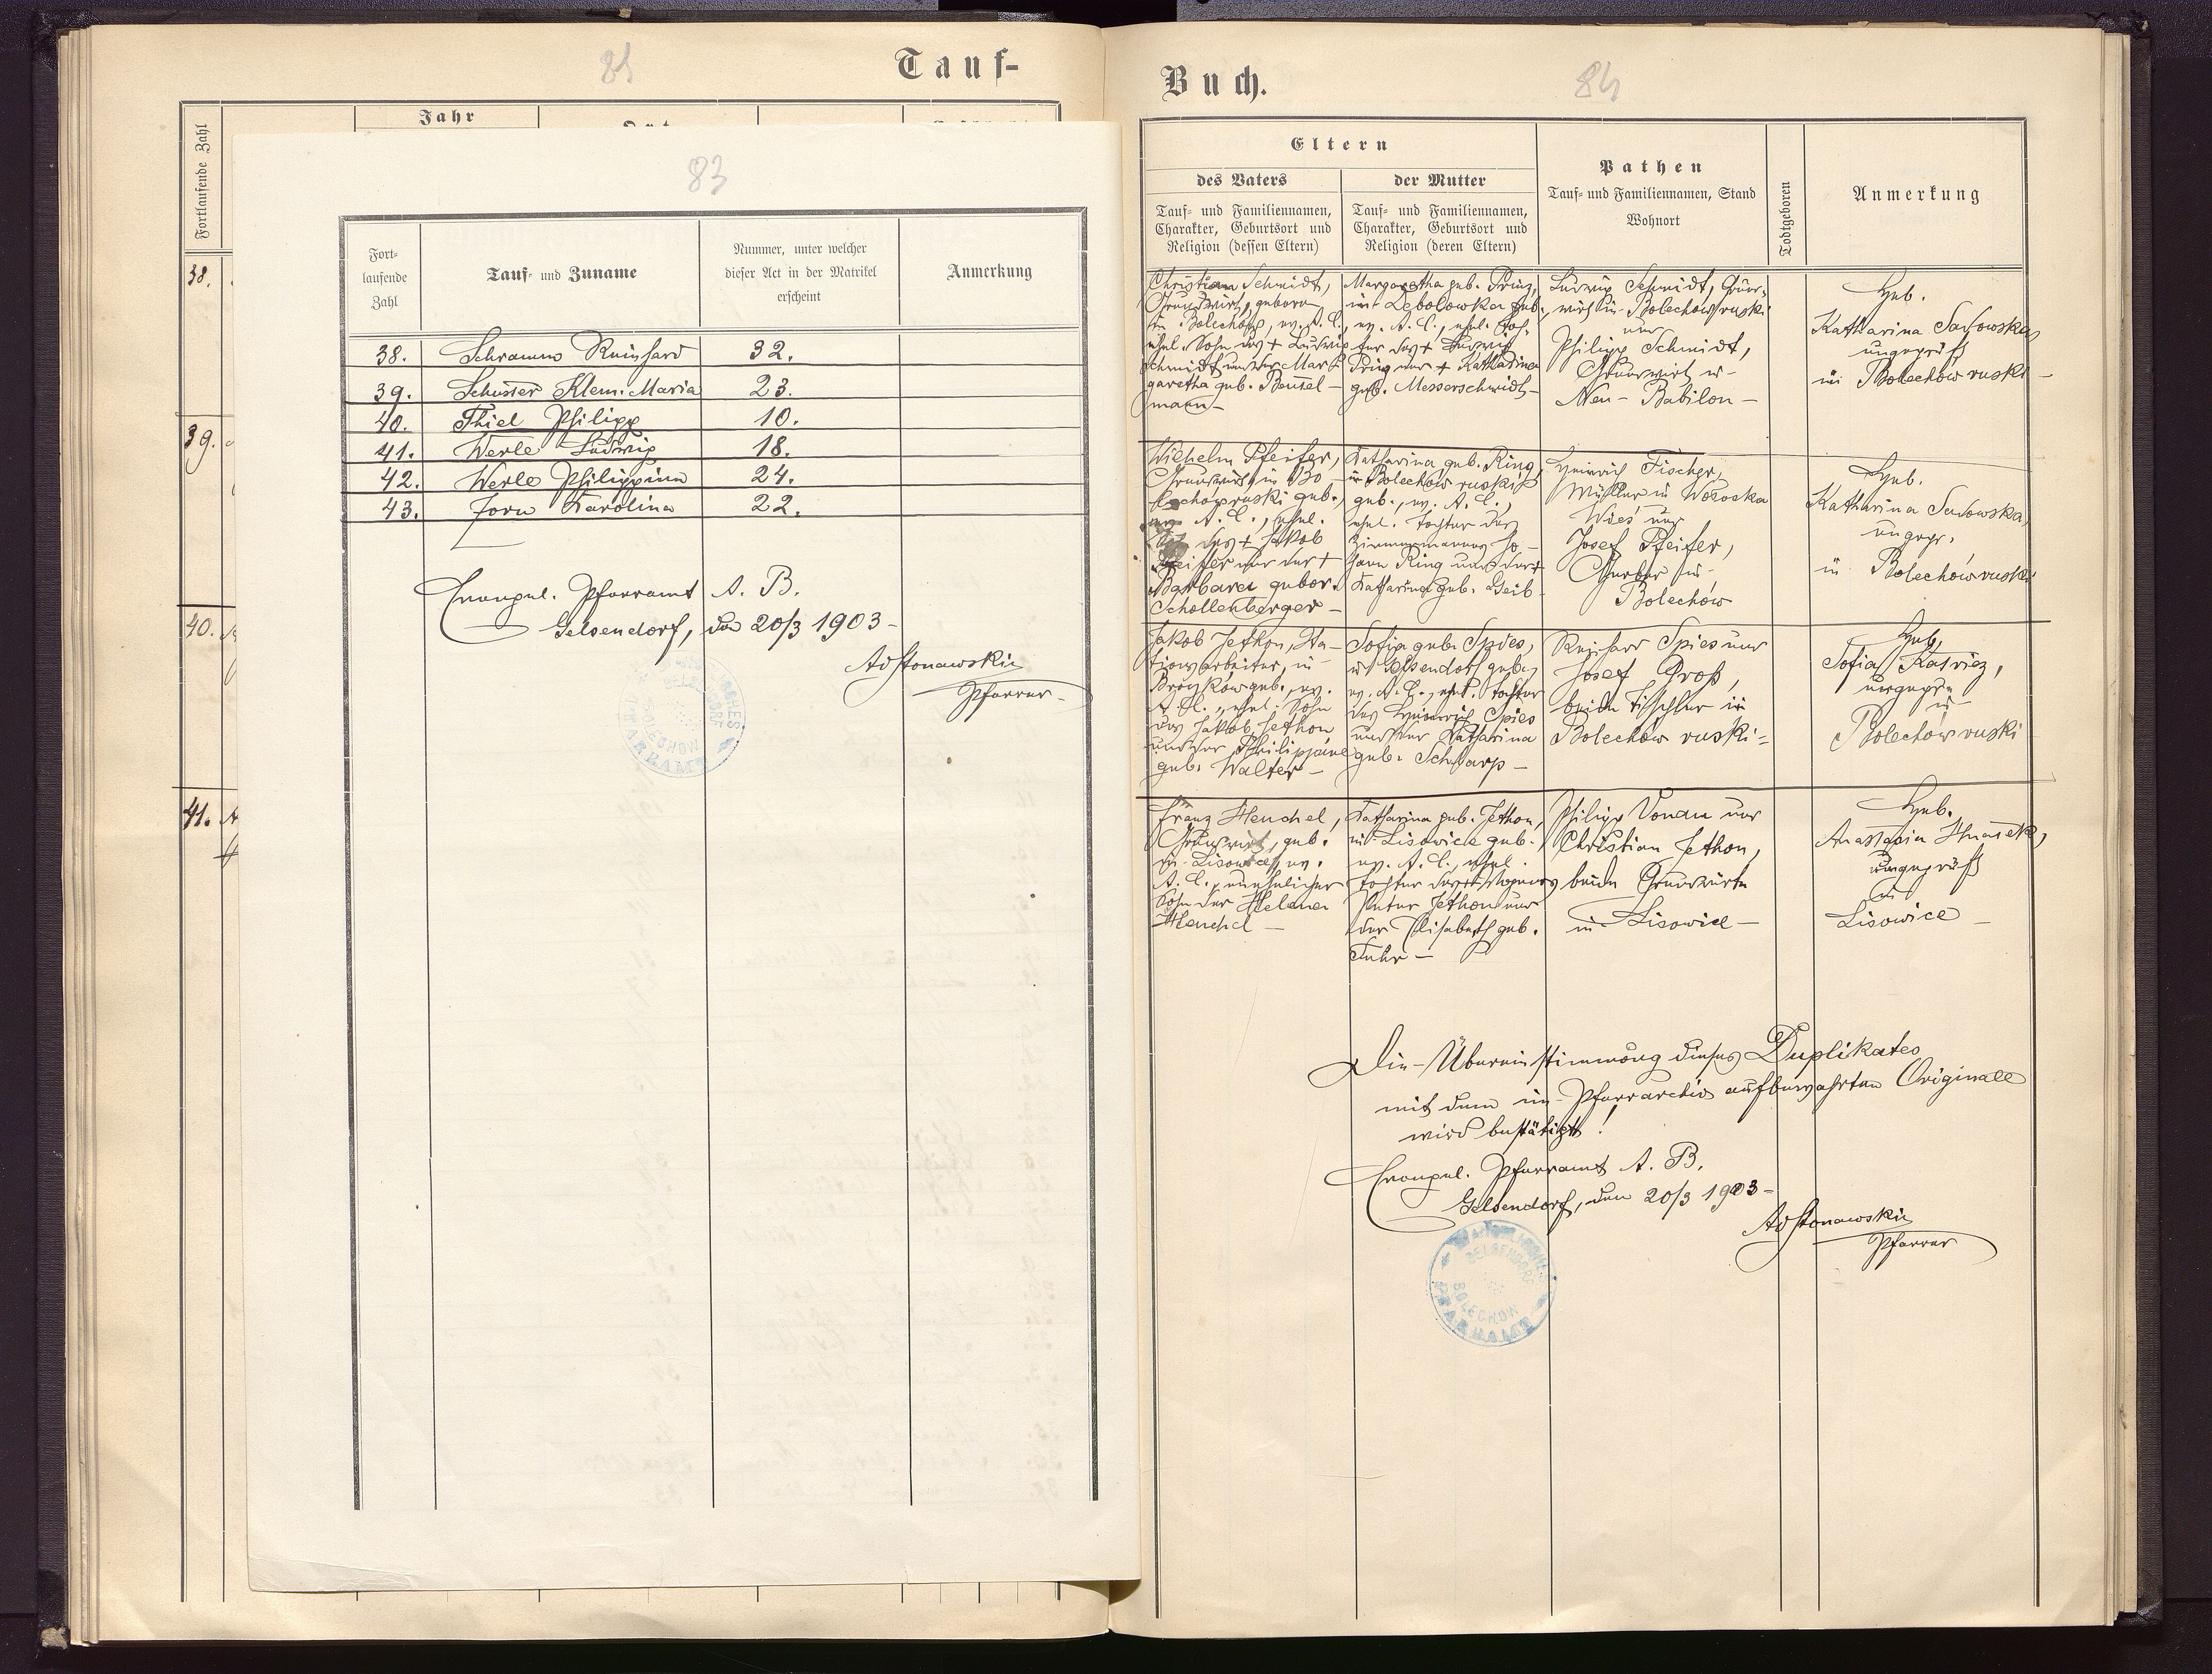 81
Tauf-
Fortlaufende Zahl
Jahr
38.
39.
40.
41.
83
Fort-
laufende
Zahl
Tauf- und Zuname
Nummer, unter welcher
dieser Act in der Matrikel
erscheint
Anmerkung
38. Schramm Reinhard 32.
39. Schuster Klem. Maria 23.
40. Thiel Philipp 10.
41. Werle Ludwig 18.
42. Werle Philippina 24.
43. Zorn Karolina 22.
Evangel. Pfarramt A. B.
Gelsendorf, den 20/3 1903-
Pfarrer-
GELSENDORF
BOLECHOW
PFARRAMT
Buch.
84
Eltern
des Vaters
Tauf- und Familiennamen,
Charakter, Geburtsort und
Religion (dessen Eltern)
der Mutter
Tauf- und Familiennamen,
Charakter, Geburtsort und
Religion (deren Eltern)
Pathen
Tauf- und Familiennamen, Stand
Wohnort
Todtgeboren
Anmerkung
Christian Schmidt,
Grundwirt, geboren
in Bolechów, ev. A. C.,
ehel. Sohn des + Ludwig
Schmidt und der Mar-
garetha geb. Beusel-
mann-
Margaretha geb. Prinz,
in Debolowka geb.,
ev. A. C., ehel. Toch-
ter des + Ludwig
Prinz und + Katharina
geb. Messerschmidt-
Ludwig Schmidt, Grund-
wirth in Bolechów ruski
und
Philipp Schmidt,
Grundwirt in-
Neu-Babilon-
Heb.
Katharina Sadowska,
ungeprüft
in Bolechów ruski-
Wilhelm Pfeifer,
Grundwirt in Bo-
lechów ruski geb.,
ev. A. C., ehel.
des + Jakob
Pfeifer und der +
Barbara gebor.
Schollenberger-
Katharina geb. Ring,
in Bolechów ruski
geb., ev. A. C.,
ehel. Tochter des
Zimmermannes Jo-
hann Ring und der +
Katharina geb. Geib-
Heinrich Fischer,
Müller in Woloska
Wies und
Josef Pfeifer,
Gerber in-
Bolechów
Heb.
Katharina Sadowska,
ungepr.
in Bolechów ruski
Jakob Jethon, Sta-
tionsarbeiter, in
geb., ev.
A. C., ehel. Sohn
des Jakob Jethon
und der Philippine
geb. Walter-
Sofia geb. Spies,
in Gelsendorf geb.,
ev. A. C., ehel. Tochter
des Heinrich Spies
und der Katharina
geb. Scharp-
Reinhard Spies und
Josef Groß,
beide Tischler in
Bolechów ruski-
Heb.
Sofia
ungepr.
in
Bolechów ruski
Franz Henchel,
Grundwirt, geb.
in Lisowice, ev.
A. C., unehelicher
Sohn der Helena
Henchel-
Katharina geb. Jethon,
in Lisowice geb.
ev. A. C., ehel.
Tochter des +
Peter Jethon und
der Elisabeth geb.
Fuhr-
Philipp Vonau und
Christian Jethon,
beide Grundwirte
in Lisowice-
Heb.
Anastasia
ungeprüft
in
Lisowice-
Die Übereinstimmung dieses Duplikates
mit dem im Pfarrarchiv aufbewahrten Originale
wird bestätigt!
Evangel. Pfarramt A. B.
Gelsendorf, den 20/3 1903-
Pfarrer
GELSENDORF
BOLECHOW
PFARRAMT